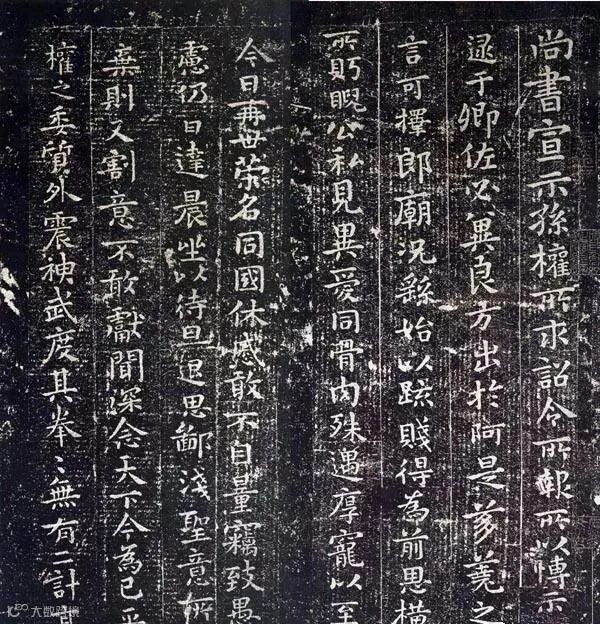 尚書宣示孫權所求詔令所報所以博示
逮于卿佐必冀良方出於阿是芻蕘之
言可擇郎廟況繇始以疏賤得為前恩橫
所眄睨公私見異愛同骨肉殊遇厚寵以至
今日再世榮名同國休慼敢不自量竊致愚
慮仍日達晨坐以待旦退思鄙淺聖意所
棄則又割意不敢獻聞深念天下今為已平
權之委質外震神武度其拳〻無有二計
大数跨境